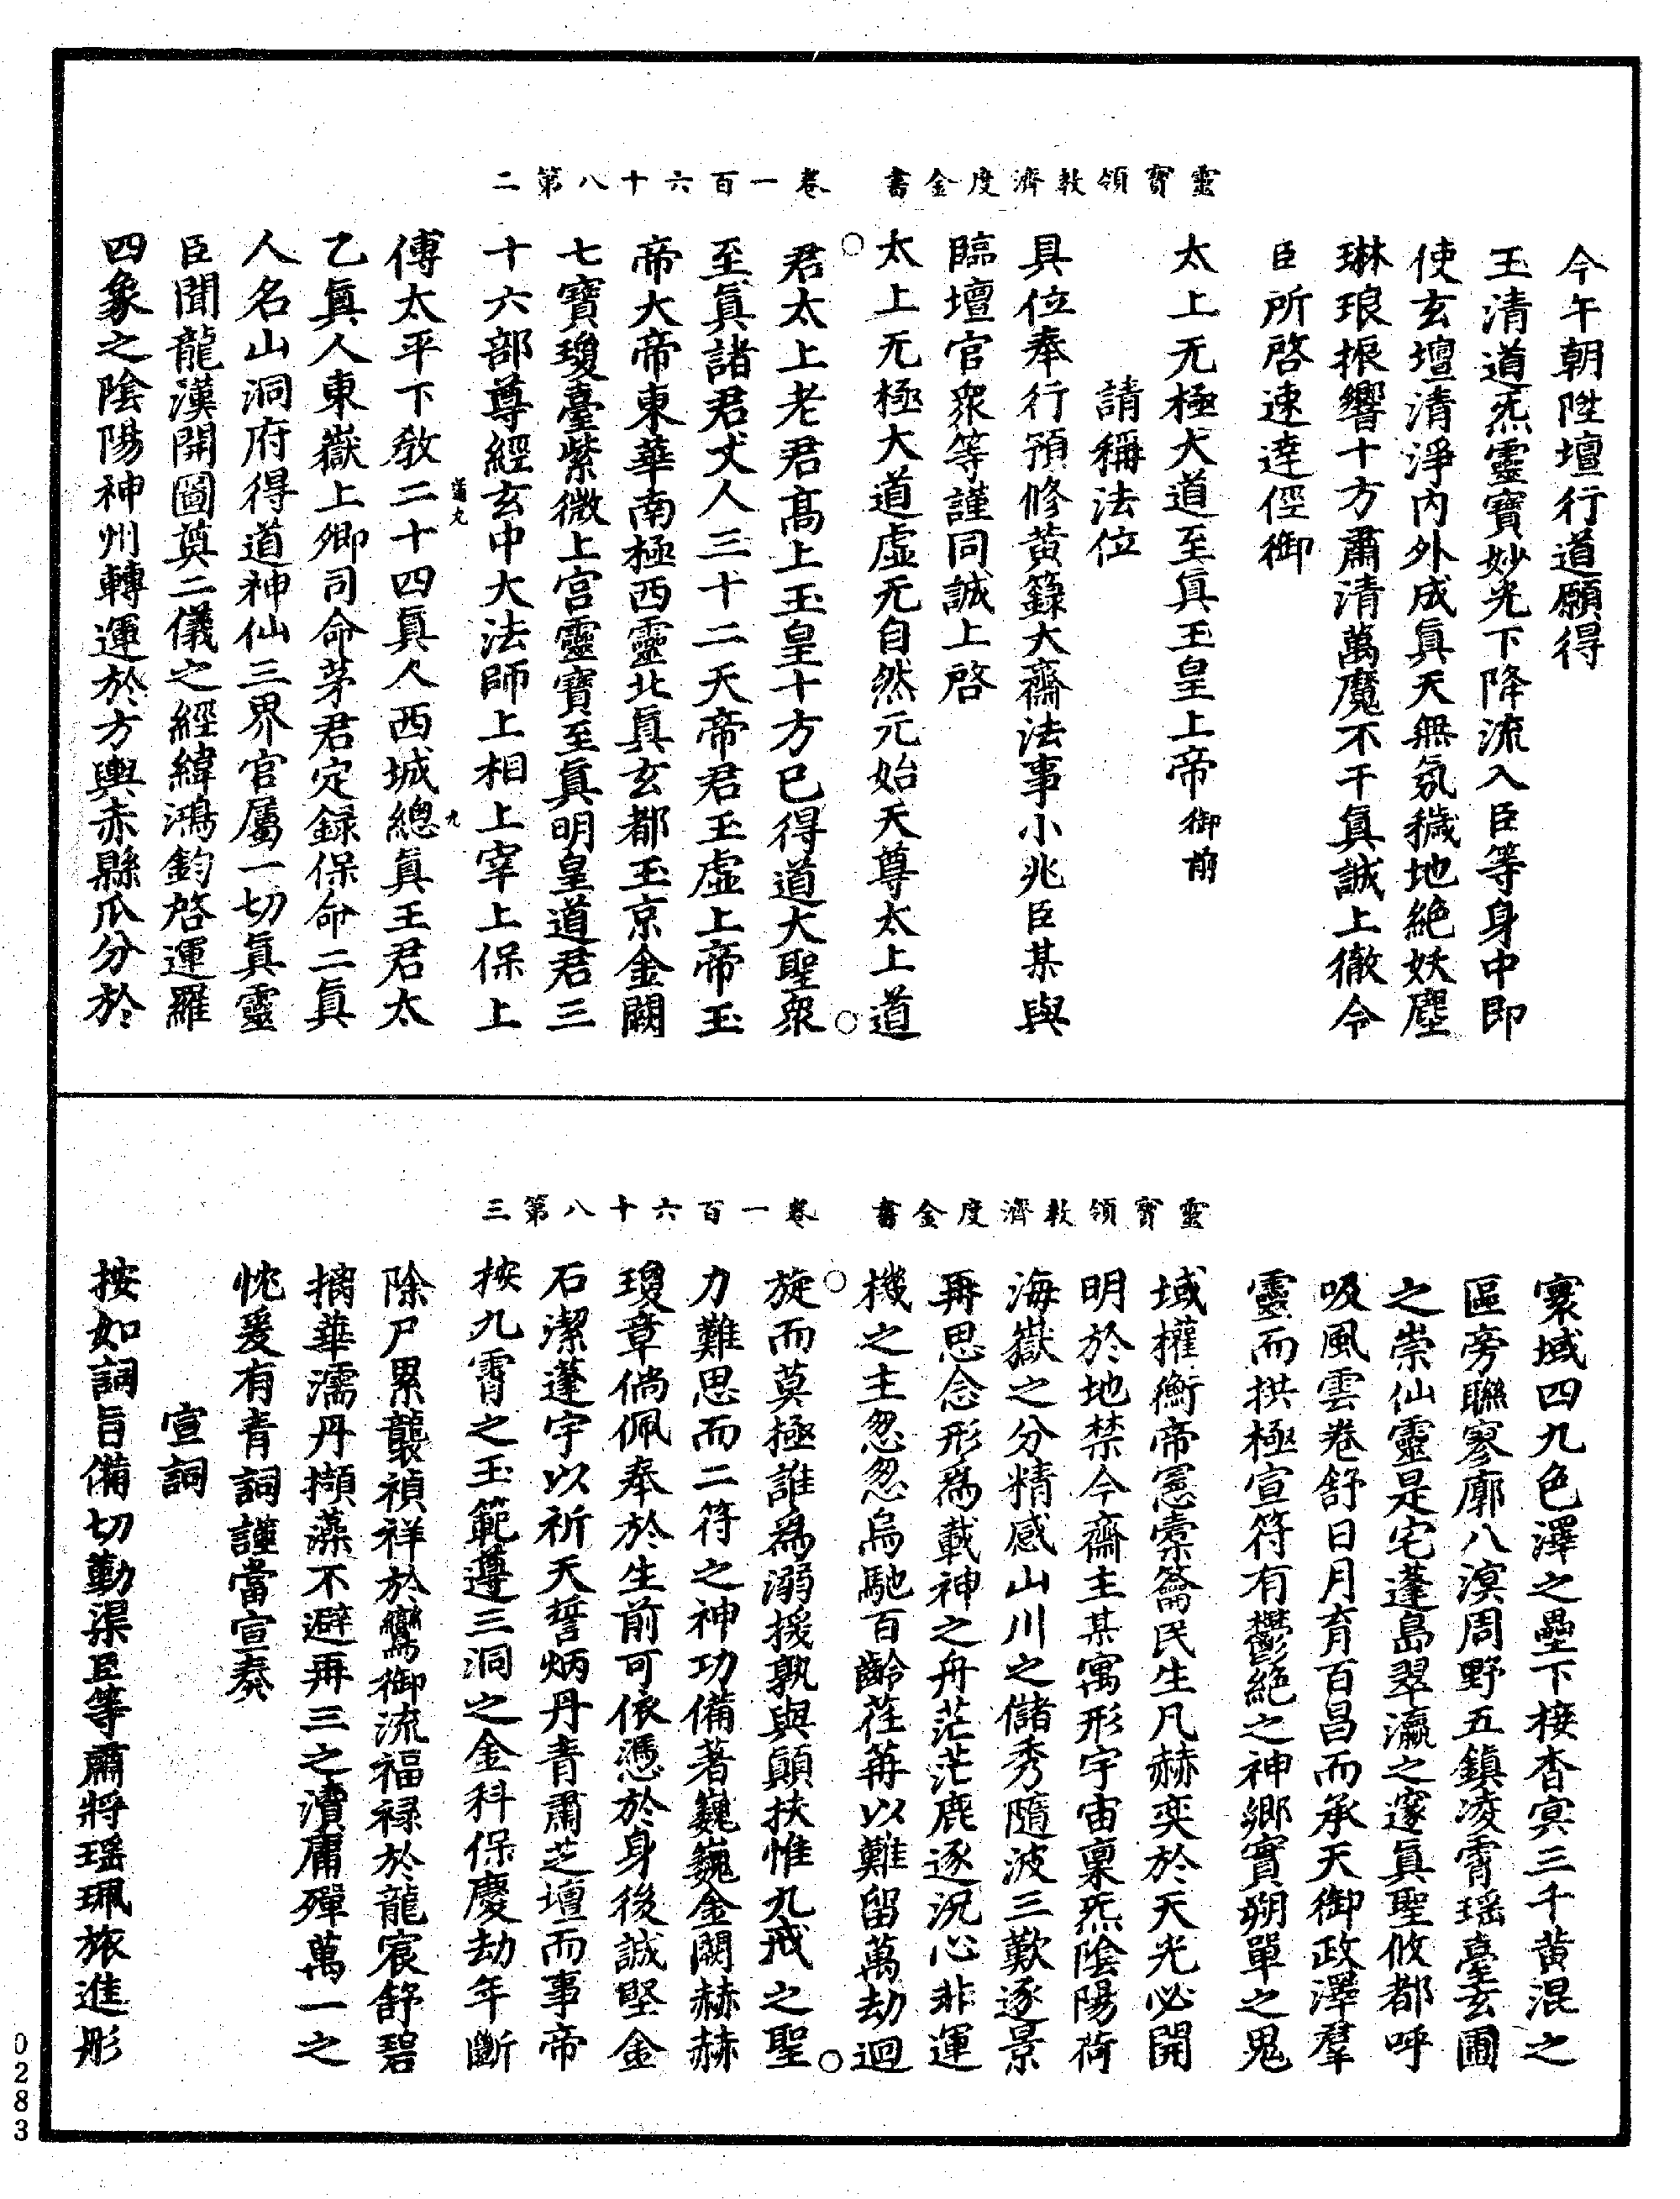 靈寶領敎濟度金書　卷一百六十八第二
今午朝陞壇行道願得
玉清道炁靈寶妙光下降流入臣等身中即
使玄壇清淨內外成眞天無氛穢地絶妖塵
琳琅振響十方肅清萬魔不干眞誠上徹令
臣所啓速達徑御
太上无極大道至眞玉皇上帝御前
請稱法位
具位奉行預修黃籙大齋法事小兆臣某與
臨壇官衆等謹同誠上啓
太上无極大道虛无自然元始天尊太上道
君太上老君高上玉皇十方已得道大聖衆
至眞諸君丈人三十二天帝君玉虛上帝玉
帝大帝東華南極西靈北眞玄都玉京金闕
七寶瓊臺紫微上宮靈寶至眞明皇道君三
十六部尊經玄中大法師上相上宰上保上
傅太平下敎二十四眞人西城總眞王君太
乙眞人東嶽上卿司命茅君定録保命二眞
人名山洞府得道神仙三界官屬一切眞靈
臣聞龍漢開圖奠二儀之經緯鴻鈞啓運羅
四象之陰陽神州轉運於方輿赤縣瓜分於
靈寶領敎濟度金書　卷一百六十八第三
寰域四九色澤之壘下接杳冥三千黃混之
區旁聯寥廓八溟周野五鎭凌霄瑶臺玄圃
之崇仙靈是宅蓬島翠瀛之邃眞聖攸都呼
吸風雲卷舒日月育百昌而承天御政澤羣
靈而拱極宣符有鬱絶之神鄉實朔單之鬼
域權衡帝憲橐籥民生凡赫奕於天光必開
明於地禁今齋主某寓形宇宙稟炁陰陽荷
海嶽之分精感山川之儲秀隨波三歎逐景
再思念形爲載神之舟茫茫鹿逐況心非運
機之主忽忽烏馳百齡荏苒以難留萬劫迴
旋而莫極誰爲溺援孰與顚扶惟九戒之聖
力難思而二符之神功備著巍巍金闕赫赫
瓊章倘佩奉於生前可依憑於身後誠堅金
石潔蓬宇以祈天誓炳丹青肅芝壇而事帝
按九霄之玉範遵三洞之金科保慶劫年斷
除尸累襲禎祥於鸞御流福祿於龍宸舒碧
摛華濡丹擷藻不避再三之瀆庸殫萬一之
忱爰有青詞謹當宣奏
宣詞
按如詞旨備切勤渠臣等肅將瑶珮旅進彤
0283